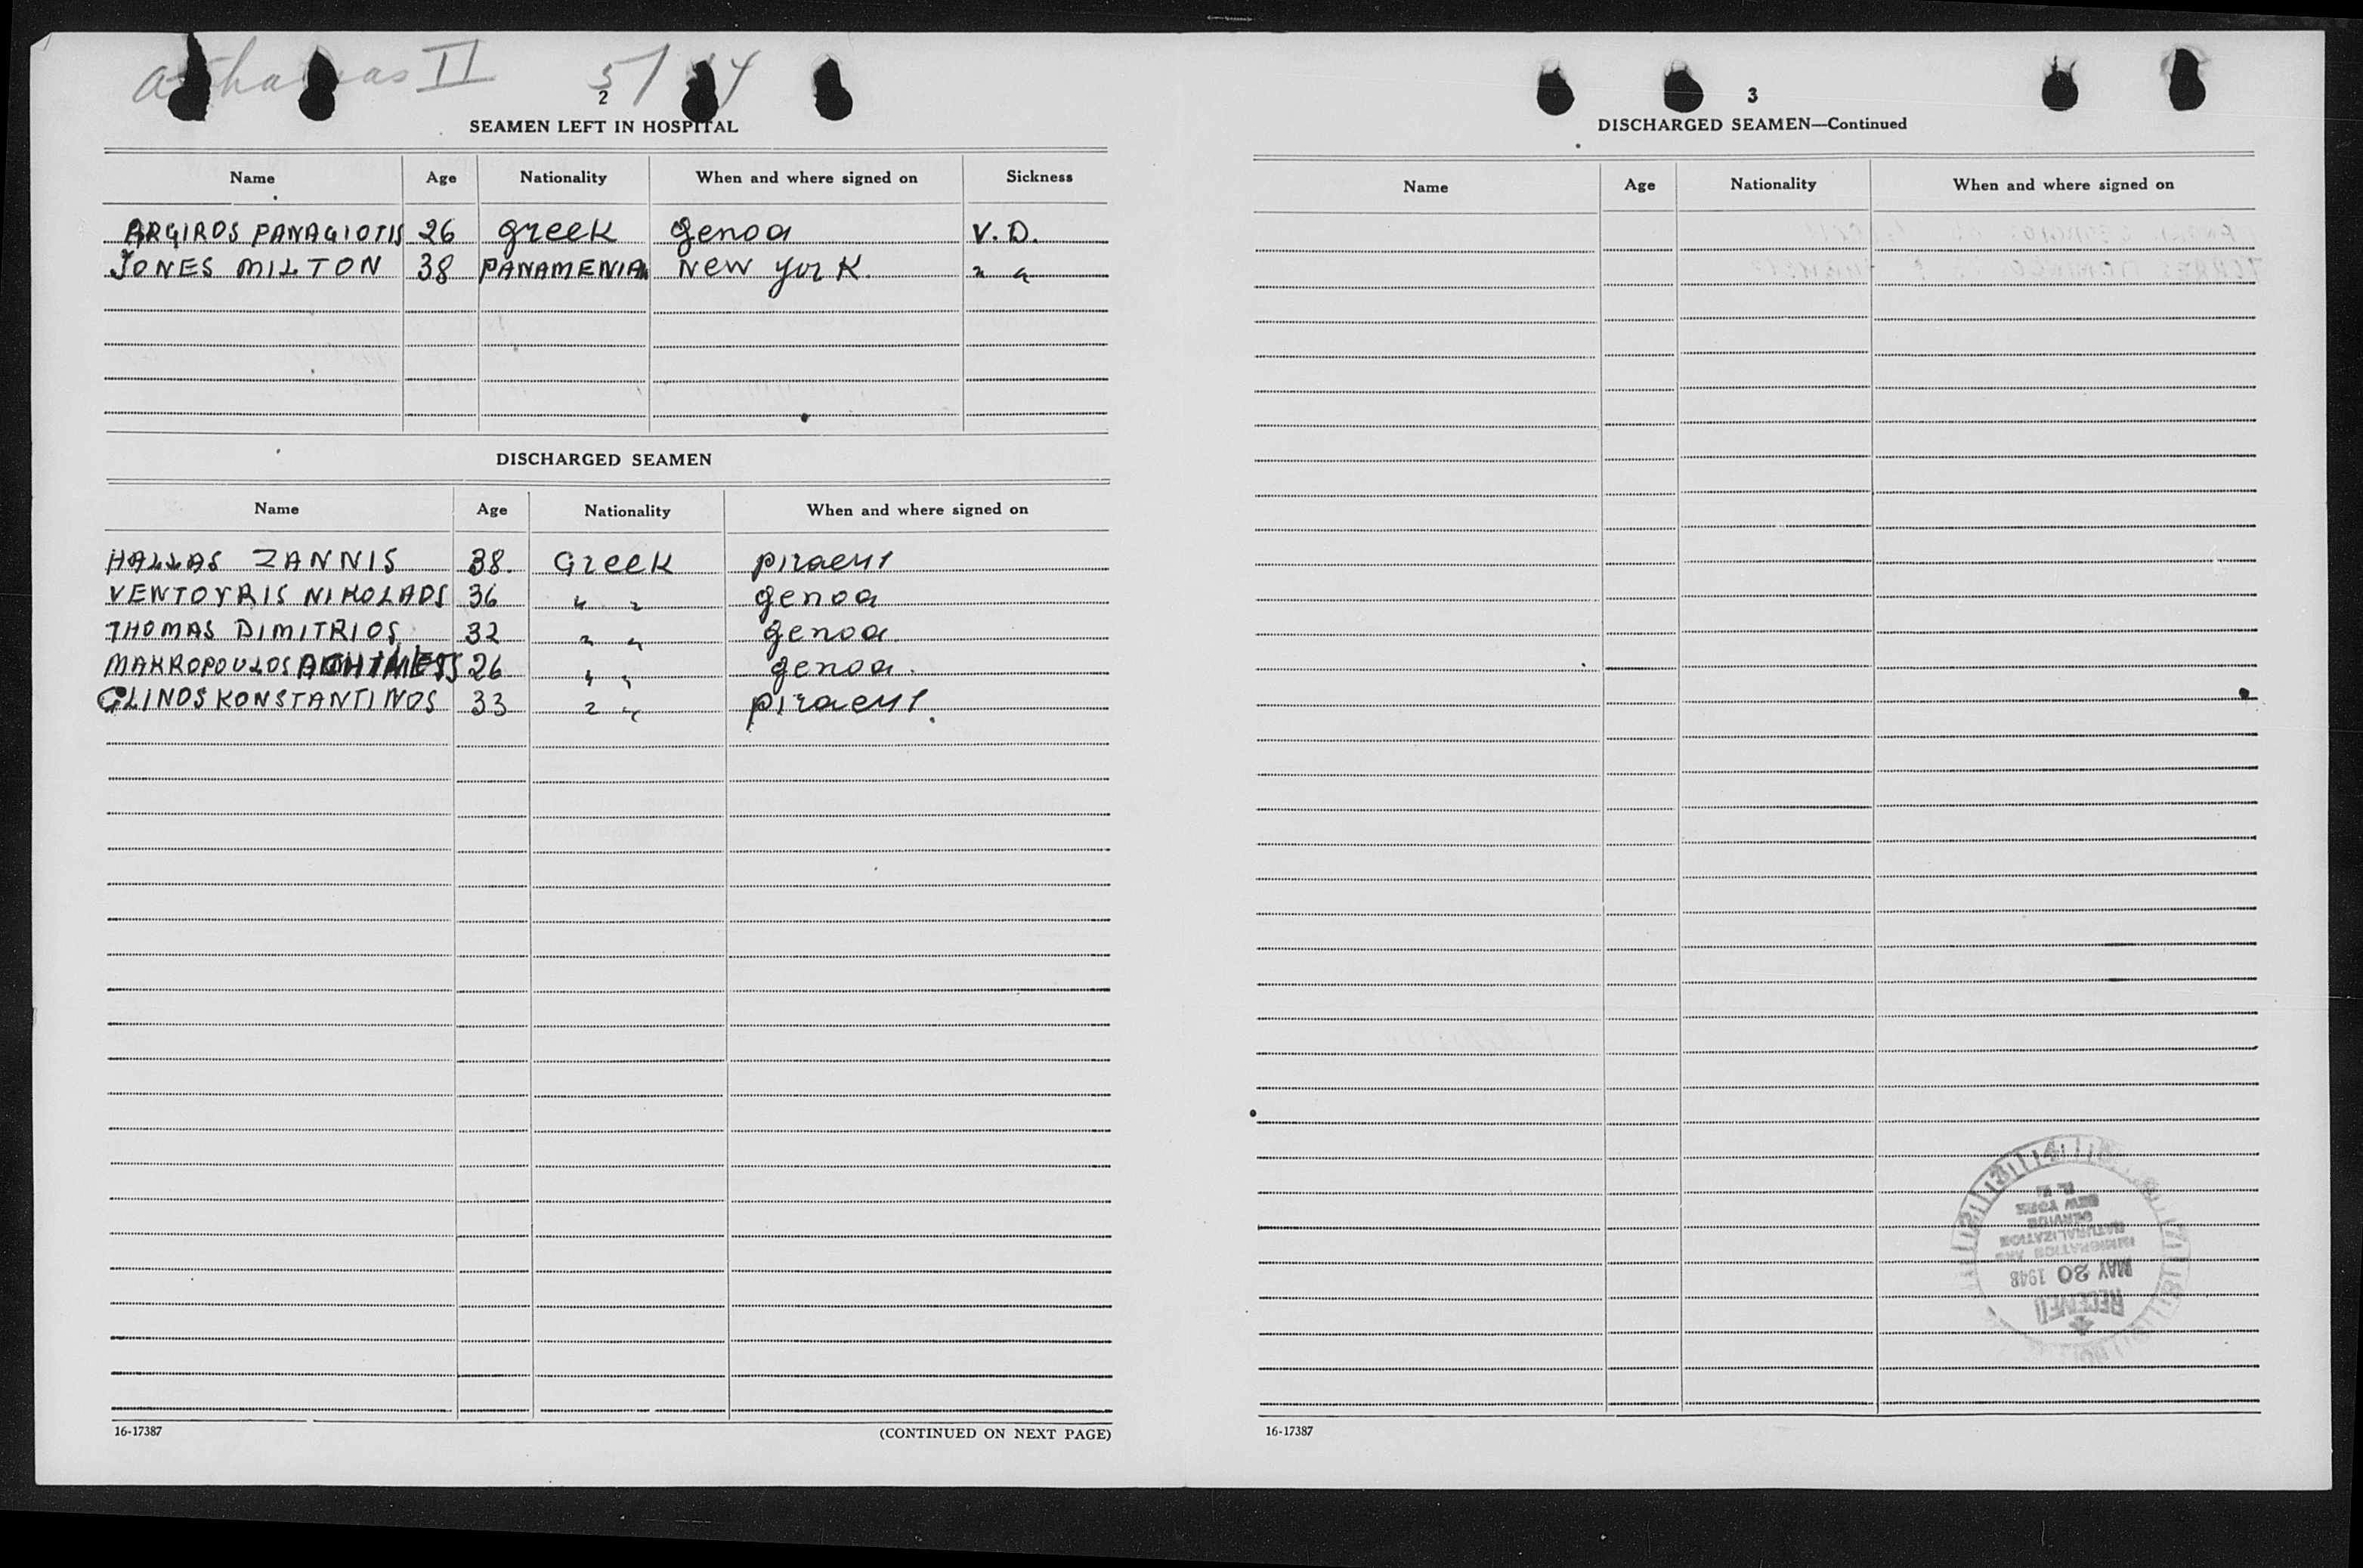 II 5/
2
SEAMEN LEFT IN HOSPITAL
Name Age Nationality When and where signed on Sickness
ARGIROS PANAGIOTIS 26 greek genoa V.D.
JONES MILTON 38 PANAMENIAN New york. " "
DISCHARGED SEAMEN
Name Age Nationality When and where signed on
HALLAS ZANNIS 38. Greek piraeus
VENTOYRIS NIKOLAOS 36 " " genoa
THOMAS DIMITRIOS 32 " " genoa
MAKROPOULOS 26 " " genoa.
GLINOS KONSTANTINOS 33 " " piraeus.
16-17387 (CONTINUED ON NEXT PAGE)
3
DISCHARGED SEAMEN—Continued
Name Age Nationality When and where signed on
RECEIVED
MAY 20 1948
IMMIGRATION AND
NATURALIZATION
SERVICE
NEW YORK
N. Y.
16-17387